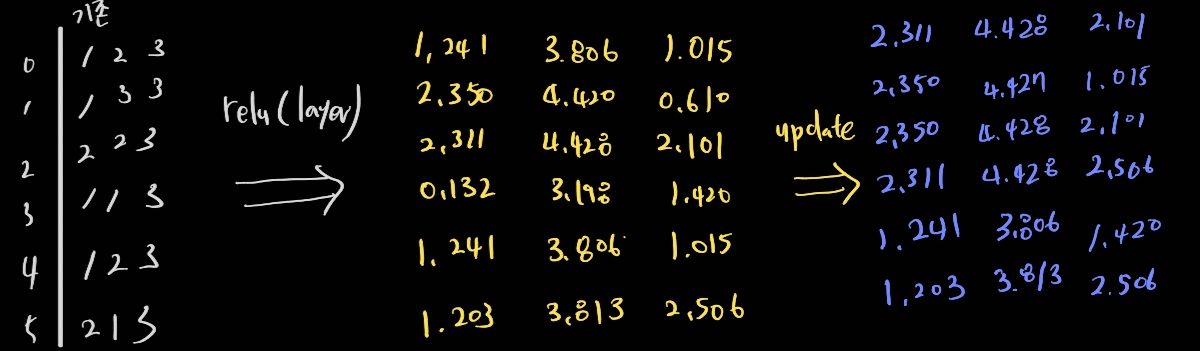 기존
0 1 2 3 1,241 3.806 1.015 2.311 4.428 2.101
1 1 3 3 relu(layer) 2.350 4.420 0.610 2,350 4.427 1.015
2 2 2 3 2,311 4.428 2.101 update 2,350 4.428 2.101
3 1 1 3 0,132 3.198 1.420 2,311 4.428 2,506
4 1 2 3 1.241 3.806 1.015 1.241 3.806 1.420
5 2 1 3 1.203 3.813 2,506 1.203 3.813 2.506